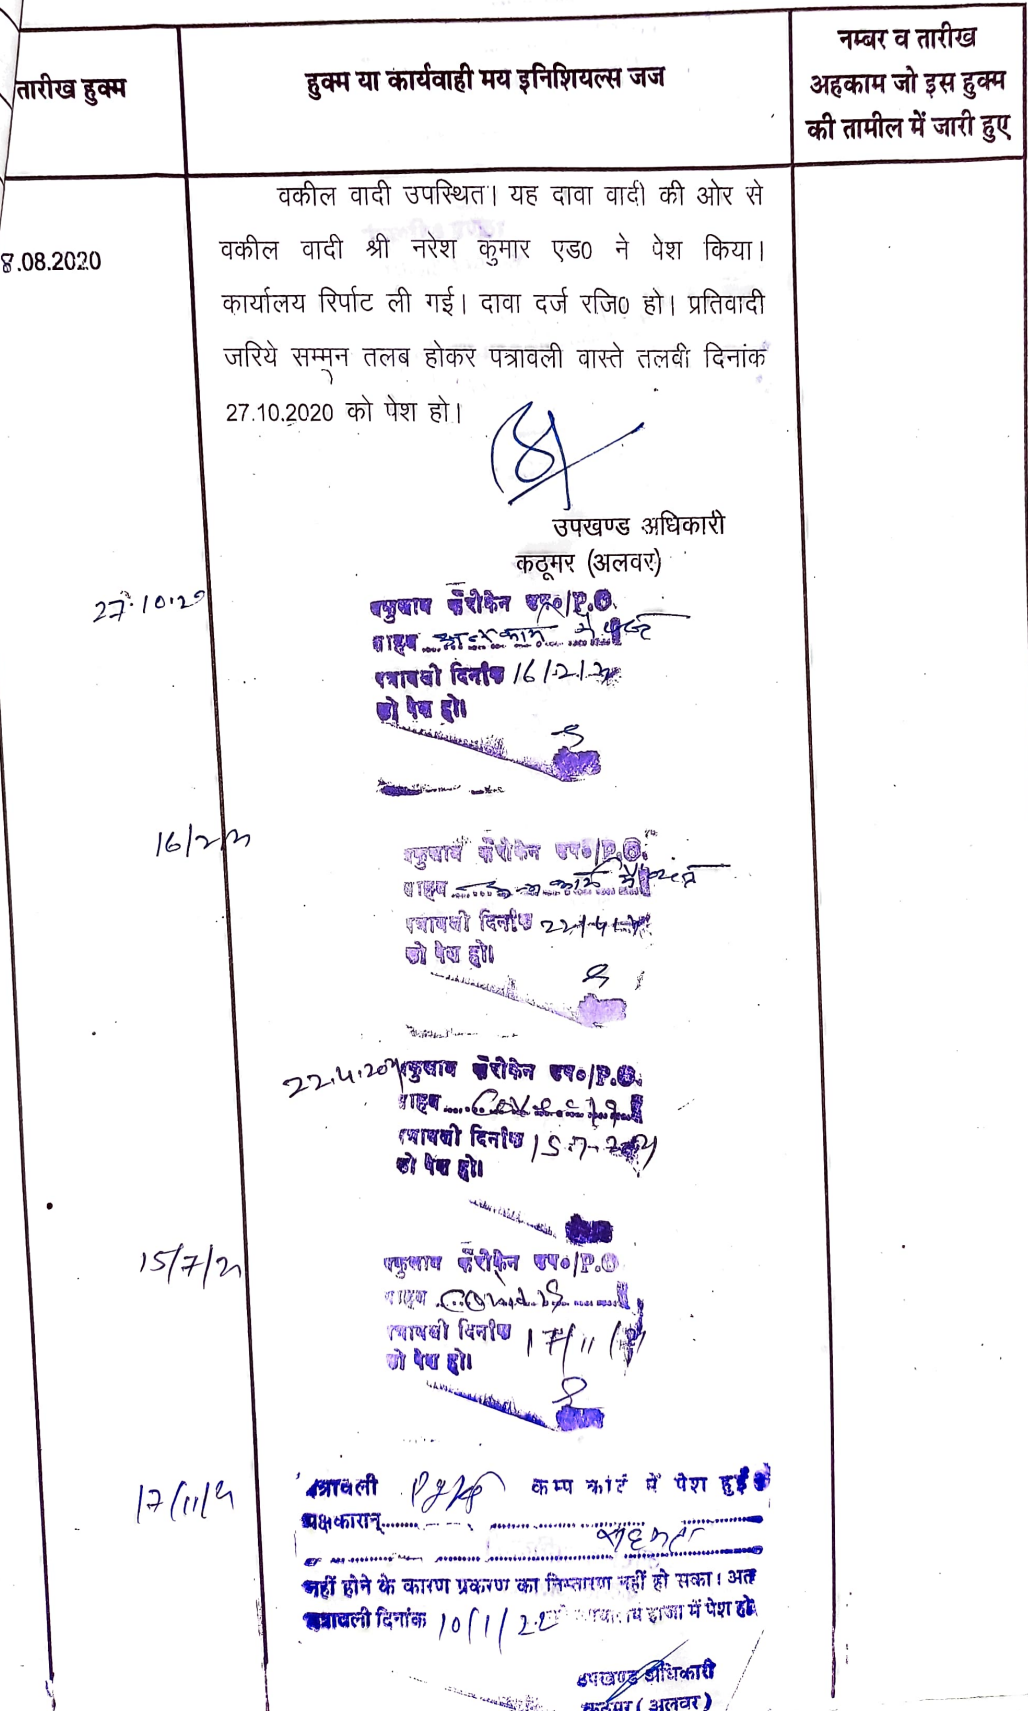 तारीख हुक्म
हुक्म या कार्यवाही मय इनिशियल्स जज
नम्बर व तारीख
अहकाम जो इस हुक्म
की तामील में जारी हुए
8.08.2020
वकील वादी उपस्थित। यह दावा वादी की ओर से
वकील वादी श्री नरेश कुमार एड0 ने पेश किया।
कार्यालय रिर्पाट ली गई। दावा दर्ज रजि0 हो। प्रतिवादी
जरिये सम्मुन तलब होकर पत्रावली वास्ते तलवी दिनांक
27.10.2020 को पेश हो।
उपखण्ड अधिकारी
कठूमर (अलवर)
27.10.20
/P.O.
साहब
पत्रावली दिनांक 16/2/21
को पेश हो।
16/2/21
/P.O.
साहब
पत्रावली दिनांक 22/4/21
को पेश हो।
22.4.2021
/P.O.
साहब
पत्रावली दिनांक 15.7.2021
को पेश हो।
15/7/21
/P.O
साहब
पत्रावली दिनांक 17/11/21
को पेश हो।
17/11/21
पत्रावली कैम्प कोर्ट में पेश हुई
पक्षकारान्
सहमत
नहीं होने के कारण प्रकरण का निस्तारण नहीं हो सका। अत
पत्रावली दिनांक 10/1/22 हाजा में पेश हो
उपखण्ड अधिकारी
कठूमर (अलवर)